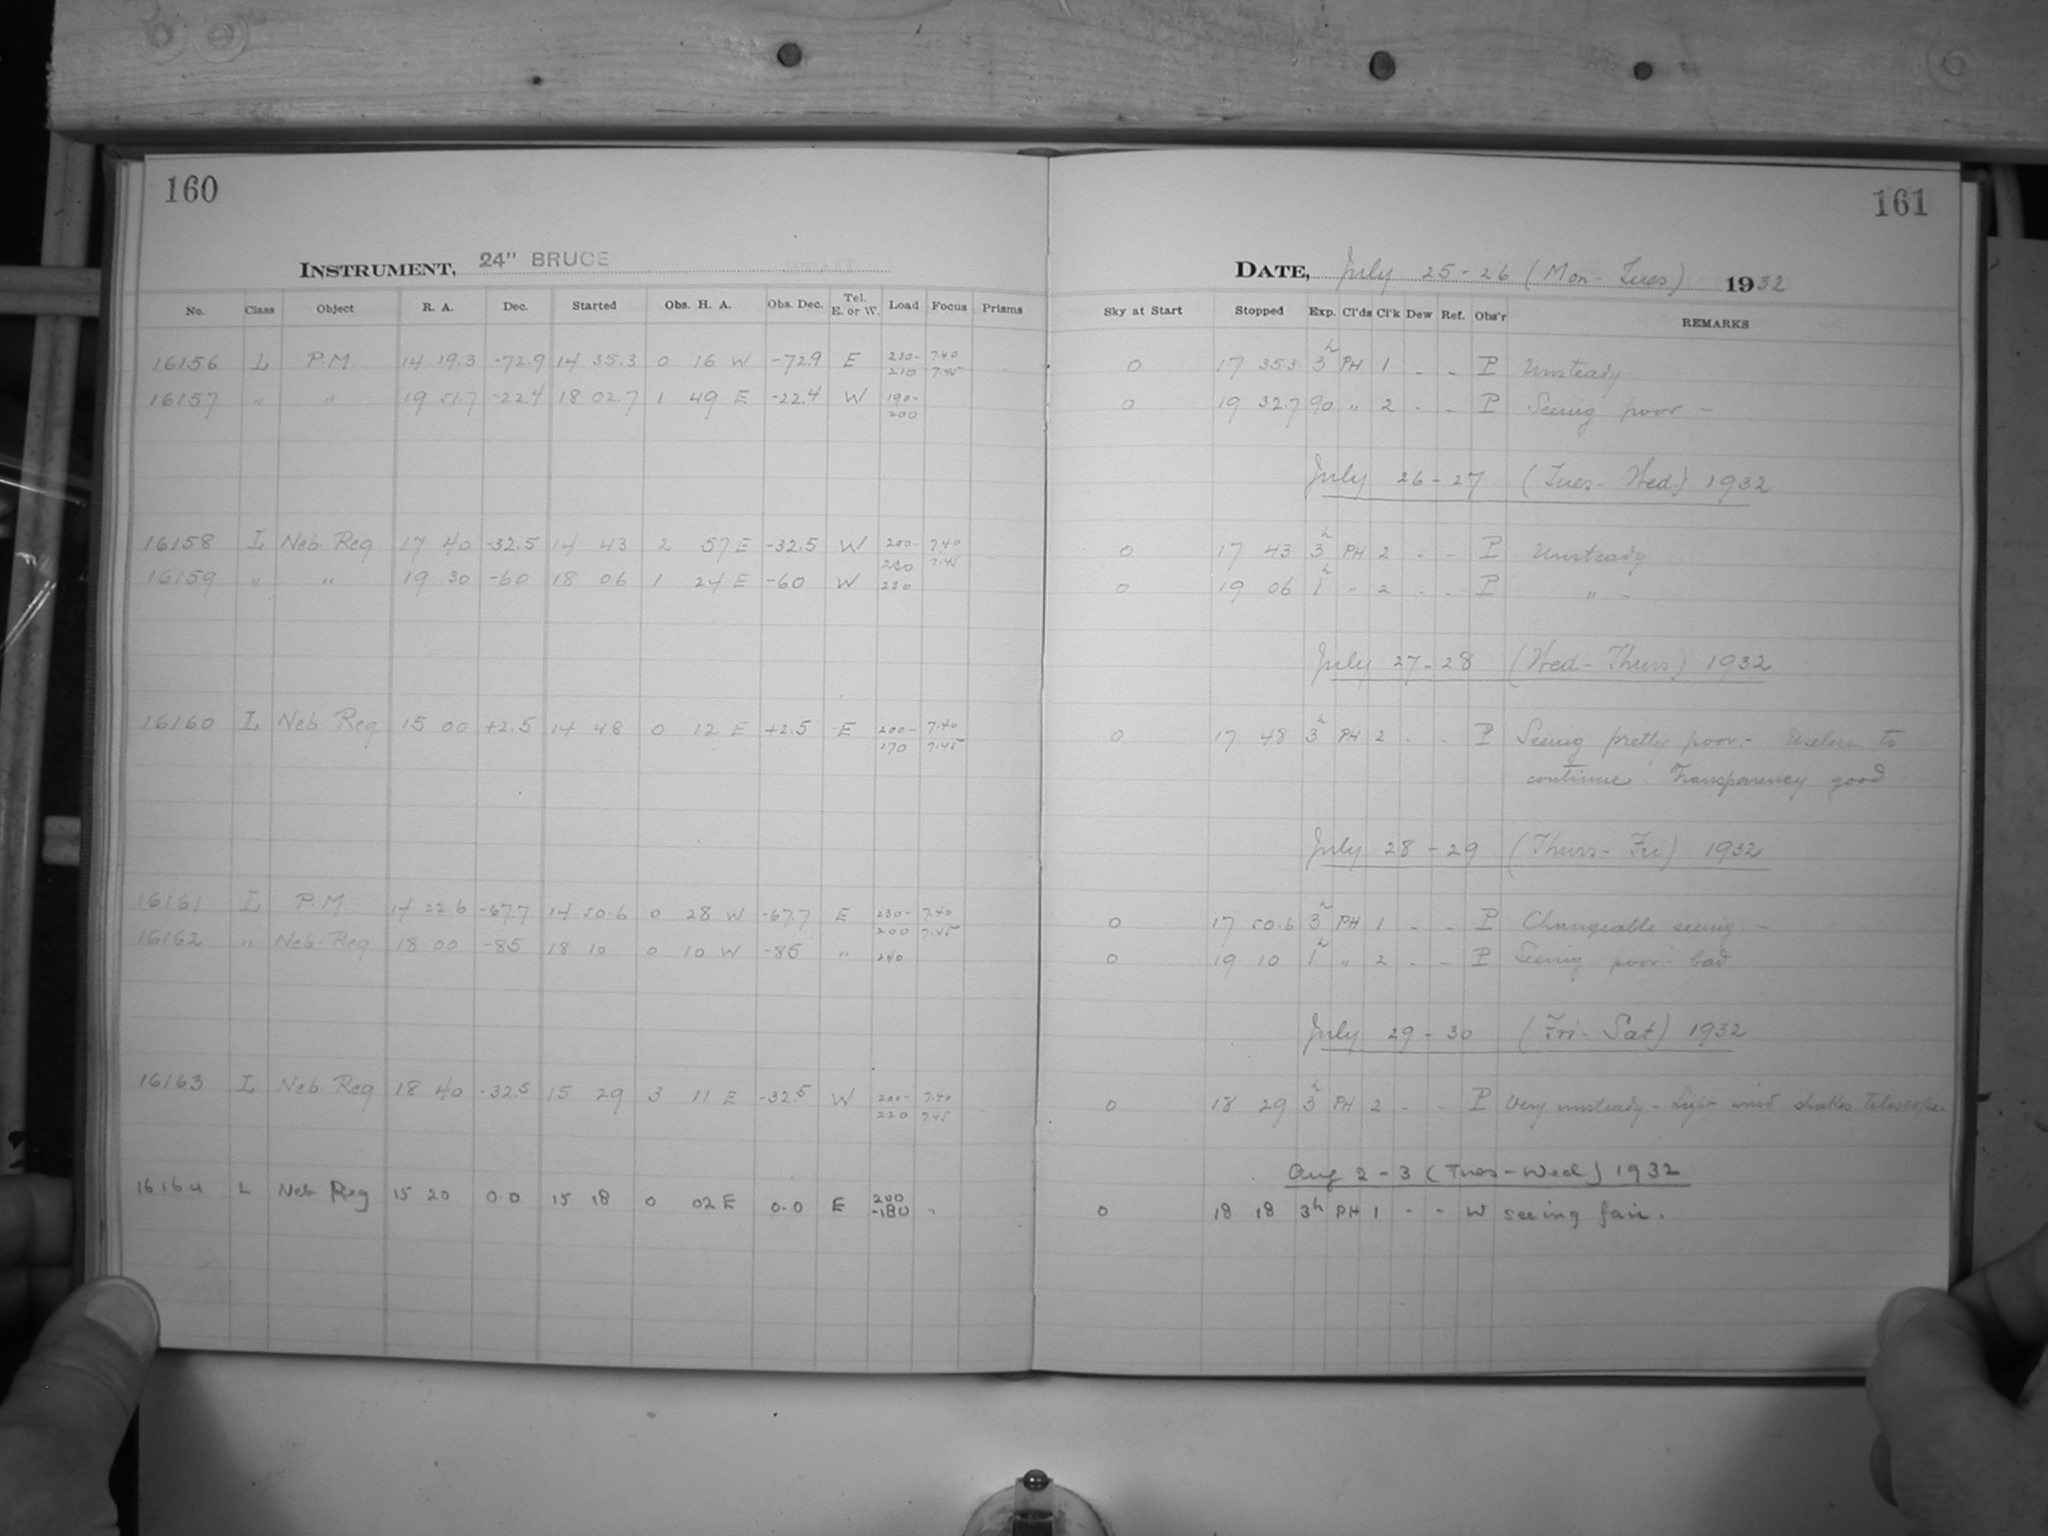 160
161
INSTRUMENT, 24" BRUCE
DATE, July 25-26 (Mon-Tues) 1932
No. Class Object R. A. Dec. Started Obs. H. A. Obs. Dec. Tel. E. or W. Load Focus Prisms Sky at Start Stopped Exp. Cl'ds Cl'k Dew Ref. Obs'r REMARKS
16156 L P.M. 14 19.3 -72.9 14 35.3 0 16 W -72.9 E 230-210 7.40 7.45 - 0 17 35.3 3h PH 1 - - P Unsteady
16157 " " 19 51.7 -22.4 18 02.7 1 49 E -22.4 W 190-200 0 19 32.7 90 " 2 - - P Seeing poor -
July 26-27 (Tues-Wed.) 1932
16158 L Neb Reg 17 40 -32.5 14 43 2 57 E -32.5 W 200-230 7.40 7.45 0 17 43 3h PH 2 - - P Unsteady
16159 " " 19 30 -60 18 06 1 24 E -60 W 230 0 19 06 1h " 2 - - P " -
July 27-28 (Wed-Thurs) 1932
16160 L Neb Reg 15 00 +2.5 14 48 0 12 E +2.5 E 200-170 7.40 7.45 0 17 48 3h PH 2 - - P Seeing pretty poor - Useless to
continue. Transparency good
July 28-29 (Thurs-Fri) 1932
16161 L P.M. 14 22.6 -67.7 14 50.6 0 28 W -67.7 E 230-200 7.40 7.45 0 17 50.6 3h PH 1 - - P Changeable seeing -
16162 " Neb Reg 18 00 -85 18 10 0 10 W -85 " 240 0 19 10 1h " 2 - - P Seeing poor - bad
July 29-30 (Fri-Sat) 1932
16163 L Neb Reg 18 40 -32.5 15 29 3 11 E -32.5 W 200-220 7.40 7.45 0 18 29 3h PH 2 - - P Very unsteady - Light wind shakes telescope.
Aug 2-3 (Tues-Wed) 1932
16164 L Neb Reg 15 20 0.0 15 18 0 02 E 0.0 E 200-180 " 0 18 18 3h PH 1 - - W seeing fair.